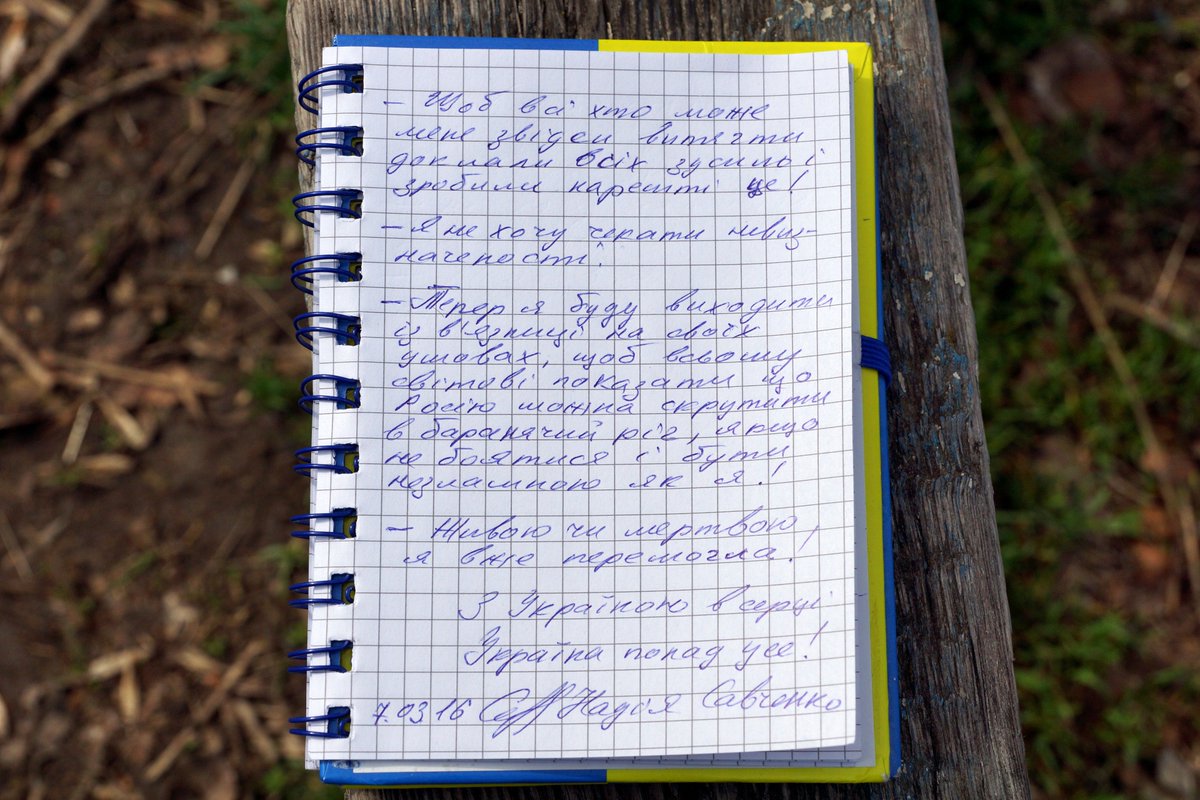 - Щоб всі хто може
мене звідси витягти
доклали всіх зусиль і
зробили нарешті це!
- Я не хочу чекати невиз-
начености!
- Тепер я буду виходити
із в'язниці на своїх
умовах, щоб всьому
світові показати що
Росію можна скрутити
в баранячий ріг, якщо
не боятися і бути
незламною як я!
- Живою чи мертвою,
я вже перемогла!
З Україною в серці
Україна понад усе!
7.03 16 Надія Савченко